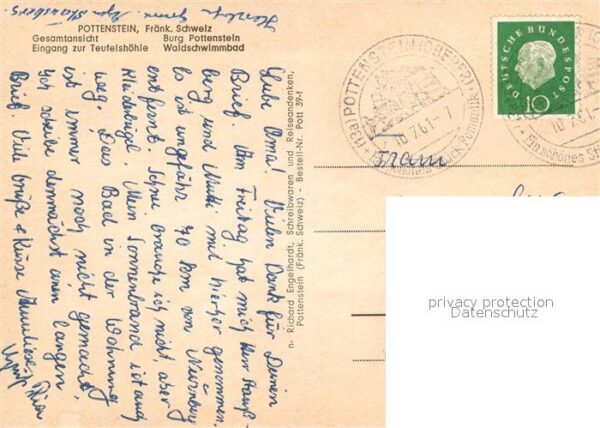 POTTENSTEIN, Fränk. Schweiz
Gesamtansicht Burg Pottenstein
Eingang zur Teufelshöhle Waldschwimmbad
Liebe Oma! Vielen Dank für Deinen
Brief. Am Freitag hat mich Herr
berg und Mutti mit hierher genommen.
Es ist ungefähr 70 km von Nürnberg
entfernt. Schuhe brauche ich nicht, aber
Kleiderbügel. Mein Sonnenbrand ist auch
weg. Das Bad in der Wohnung
ist immer noch nicht gemacht.
Ich schreibe demnächst einen langen
Brief. Viele Grüße + Küsse
n- Richard Engelhardt, Schreibwaren und Reiseandenken,
Pottenstein (Fränk. Schweiz) - Bestell-Nr. Pott 39-1
(13a) POTTENSTEIN (OBERFR)
10.7.61.-
DEUTSCHE BUNDESPOST
10
10.7.61.-
privacy protection
Datenschutz